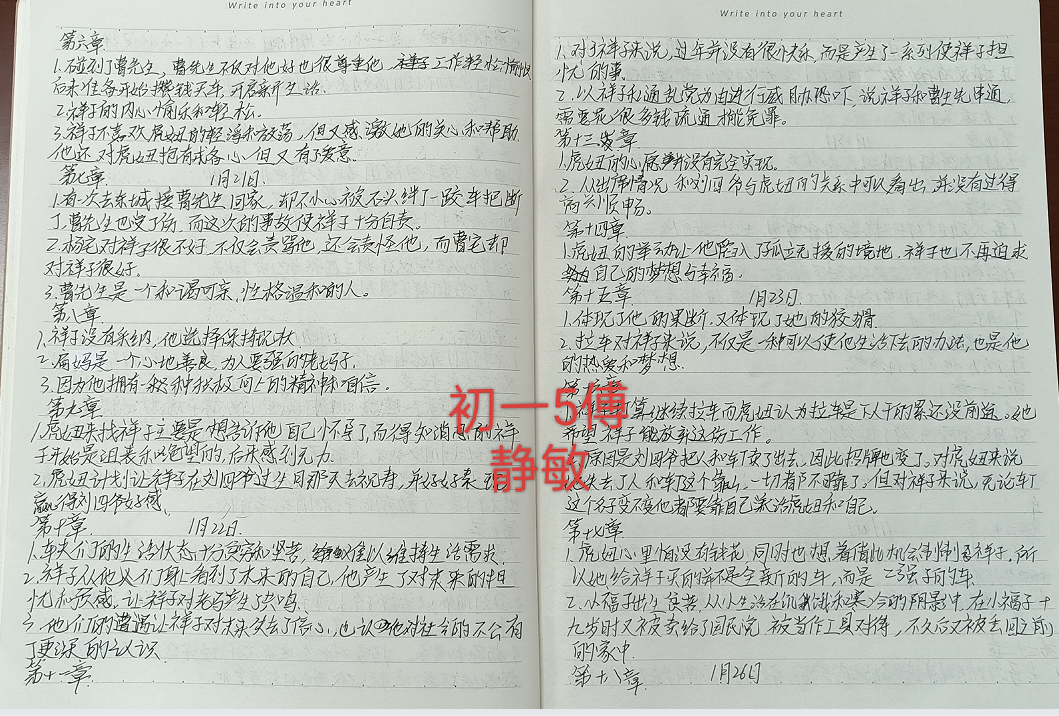 Write into your heart
第六章
1.碰到了曹先生,曹先生不仅对他好也很尊重他,祥子工作轻松愉快
后来准备开始攒钱买车,开启新生活.
2.祥子的内心愉乐和轻松.
3.祥子不喜欢虎妞的轻浮和放荡,但又感激她的关心和帮助.
他还对虎妞抱有戒备心但又有了爱意.
第七章 1月21日.
1.有一次去东城接曹先生回家,却不小心被石头绊了一跤车把断
了,曹先生也受了伤,而这次的事故使祥子十分自责.
2.杨宅对祥子很不好,不仅会责骂他,还会责怪他,而曹宅却
对祥子很好.
3.曹先生是一个和谒可亲,性格温和的人。
第八章
1.祥子没有采纳,他选择保持现状
2.高妈是一个心地善良,为人要强的老妈子.
3.因为他拥有一种积极向上的精神和自信.
第九章
1.虎妞来找祥子主要是想告诉他自己怀孕了,而得知消息的祥
子开始是沮丧和绝望的,后来感到无力.
2.虎妞计划让祥子在刘四爷过生日那天去祝寿,并好好表现
赢得刘四爷好感.
第十章. 1月22日.
1.车夫们的生活状态十分贫穷和坚苦,难以维持生活需求.
2.祥子从他人们身上看到了未来的自己,他产生了对未来的担
忧和灰感.让祥子对老马产生了共鸣.
3.他们的遭遇让祥子对未来失去了信心,也认他对社会的不公有
了更深的认识
第十一章.
Write into your heart
1.对于祥子来说,过年并没有很快乐,而是产生了一系列使祥子担
忧的事.
2.以祥子和通乱党为由进行威胁恐吓,说祥子和曹先生串通,
需要花很多钱疏通才能免罪。
第十三章
1.虎妞的心愿并没有完全实现.
2.从出席情况和刘四爷与虎妞的关系中可以看出,并没有过得
高兴顺畅。
第十四章
1.虎妞的举动让他陷入了孤立无援的境地.祥子也不再追求
自己的梦想与幸福.
第十五章. 1月23日.
1.体现了他的果断,又体现了她的狡猾.
2.拉车对祥子来说,不仅是一种可以使他生活下去的办法,也是他
的热爱和梦想.
1.祥子打算继续拉车而虎妞认为拉车是下人干的累还没前途。她
希望祥子能放弃这份工作。
原因是刘四爷把人和车厂卖了出去,因此招牌也变了.对虎妞来说
她失去了人和车厂这个靠山,一切都不踏实了.但对祥子来说,无论车厂
这个名字变不变他都要靠自己养活虎妞和自己。
第十七章
1.虎妞心里怕没有钱花,同时也想着借此机会制制祥子,所
以她给祥子买的并不是全新的车,而是二强子的车.
2.小福子出生贫苦,从小生活在饥饿和寒冷的阴影中,在小福子十
九岁时又被卖给了国民党,被当作工具对待,不久后又被丢回之前
的家中.
第十八章. 1月26日
初一5傅
静敏